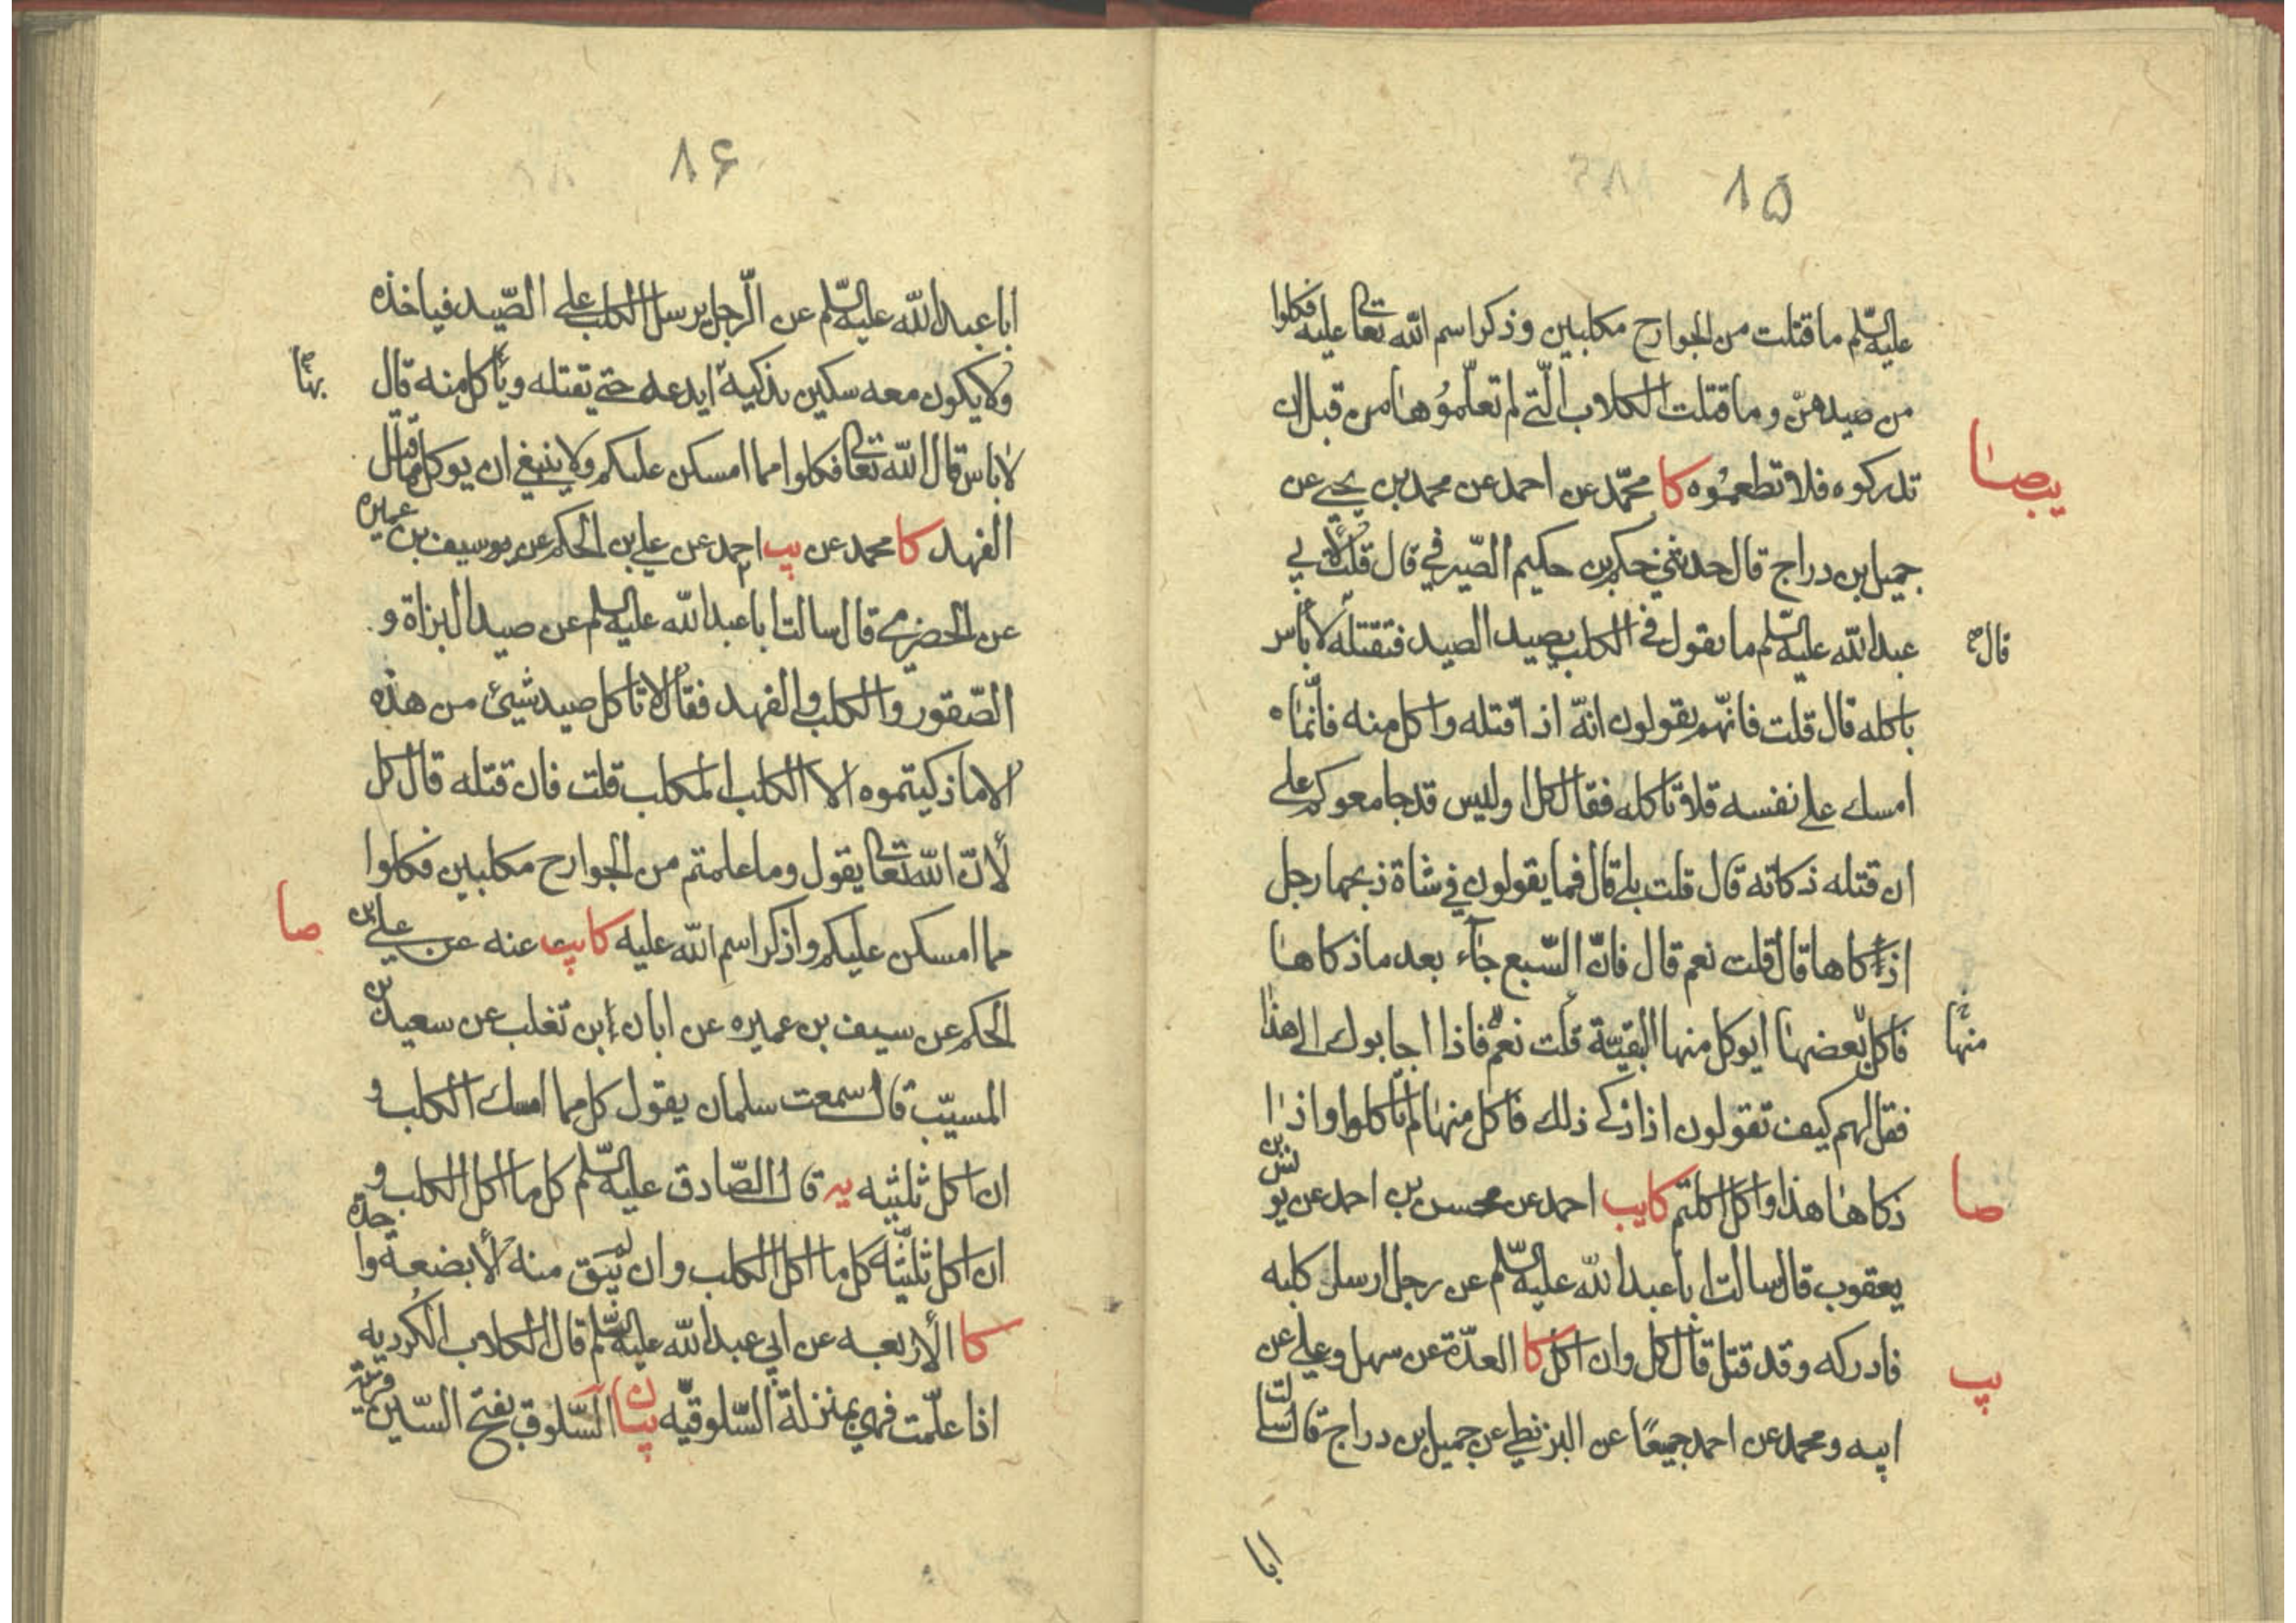 ۸۵
عليه السّلم ما قتلت من الجوارح مكلبين وذكر اسم الله تعالى عليه فكلوا
من صيدهنّ وما قتلت الكلاب الّتي لم تعلّموها من قبل ان
تدركوه فلا تطعموه كا محمّد عن احمد عن محمد بن يحيى عن
يب صا
جميل بن دراج قال حدثني حكم بن حكيم الصّيرفي قال قلت لأبي
عبد الله عليه السّلم ما يقول في الكلب يصيد الصيد فتقتله لا بأس
قال
باكله قال قلت فانّهم يقولون انّه اذا قتله واكل منه فانّما
امسك على نفسه فلا تاكله فقال كل اوليس قد جامعوكم على
ان قتله ذكاته قال قلت بلى قال فما يقولون في شاة ذبحها رجل
اذكاها قال قلت نعم قال فانّ السّبع جاء بعد ما ذكاها
فاكل بعضها ايوكل منها البقيّة قلت نعم فاذا اجابوك الى هذا
منها
فقل لهم كيف تقولون اذا ذكى ذلك فاكل منها لم تأكلوا واذا
ذكاها هذا واكل اكلتم كا يب احمد عن محسن بن احمد عن يونس بن
صا
يعقوب قال سالت ابا عبد الله عليه السّلم عن رجل ارسل كلبه
فادركه وقد قتل قال كل وان اكل كا العدّة عن سهل وعلي عن
يب
ابيه ومحمد عن احمد جميعًا عن البزنطي عن جميل بن دراج قال سالت
ابا
۸۶
ابا عبد الله عليه السّلم عن الرّجل يرسل الكلب على الصّيد فياخذه
ولا يكون معه سكين يذكيه ايدعه حتى يقتله ويأكل منه قال
بها
لا باس قال الله تعالى فكلوا مما امسكن عليكم ولا ينبغي ان يوكل ما قتل
الفهد كا محمد عن يب احمد عن علي بن الحكم عن يوسيف بن عميره
عن الحضرمي قال سالت ابا عبد الله عليه السلم عن صيد البزاة و
الصّقور والكلب والفهد فقال لا تاكل صيد شيئ من هذه
الا ما ذكيتموه الا الكلب المكلب قلت فان قتله قال كل
لأنّ الله تعالى يقول وما علمتم من الجوارح مكلبين فكلوا
مما امسكن عليكم واذكر اسم الله عليه كا يب عنه عن علي بن
صا
الحكم عن سيف بن عميره عن ابان ابن تغلب عن سعيد بن
المسيّب قال سمعت سلمان يقول كل مما امسك الكلب و
ان اكل ثلثيه يه قال الصّادق عليه السّلم كل ما اكل الكلب و
ان اكل ثلثيّه كل ما اكل الكلب وان لم يبق منه الا بضعة واحدة
كا الأربعه عن ابي عبد الله عليه السّلم قال الكلاب الكرديه
اذا علّمت فهي بمنزلة السّلوقيّه بيان السّلوق بفتح السّين قرية